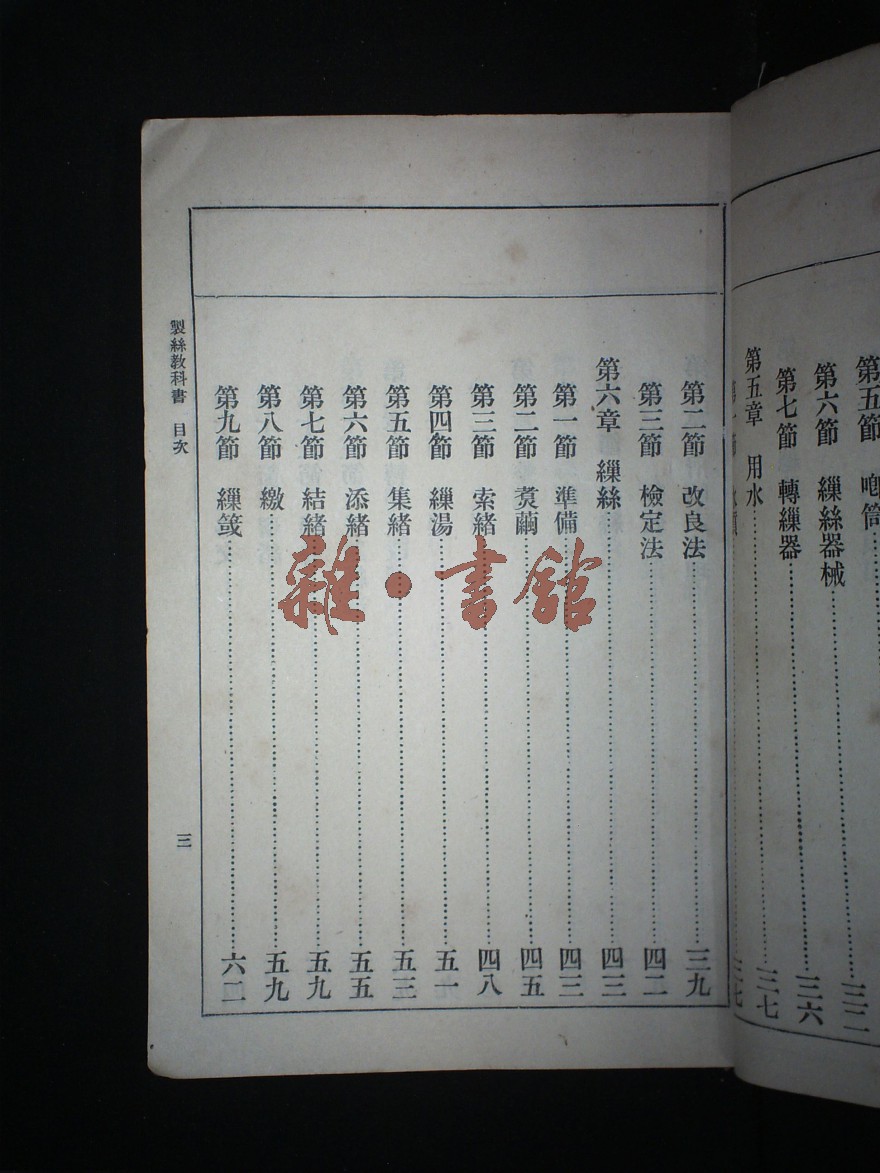 第五節 喞筒
第六節 繅絲器械 三六
第七節 轉繅器 三七
第五章 用水 三七
第二節 改良法 三九
第三節 檢定法 四二
第六章 繅絲 四三
第一節 準備 四三
第二節 煑繭 四五
第三節 索緒 四八
第四節 繅湯 五一
第五節 集緒 五三
第六節 添緒 五五
第七節 結緒 五九
第八節 繳 五九
第九節 繅䇳 六二
製絲教科書 目次 三
雜·書館